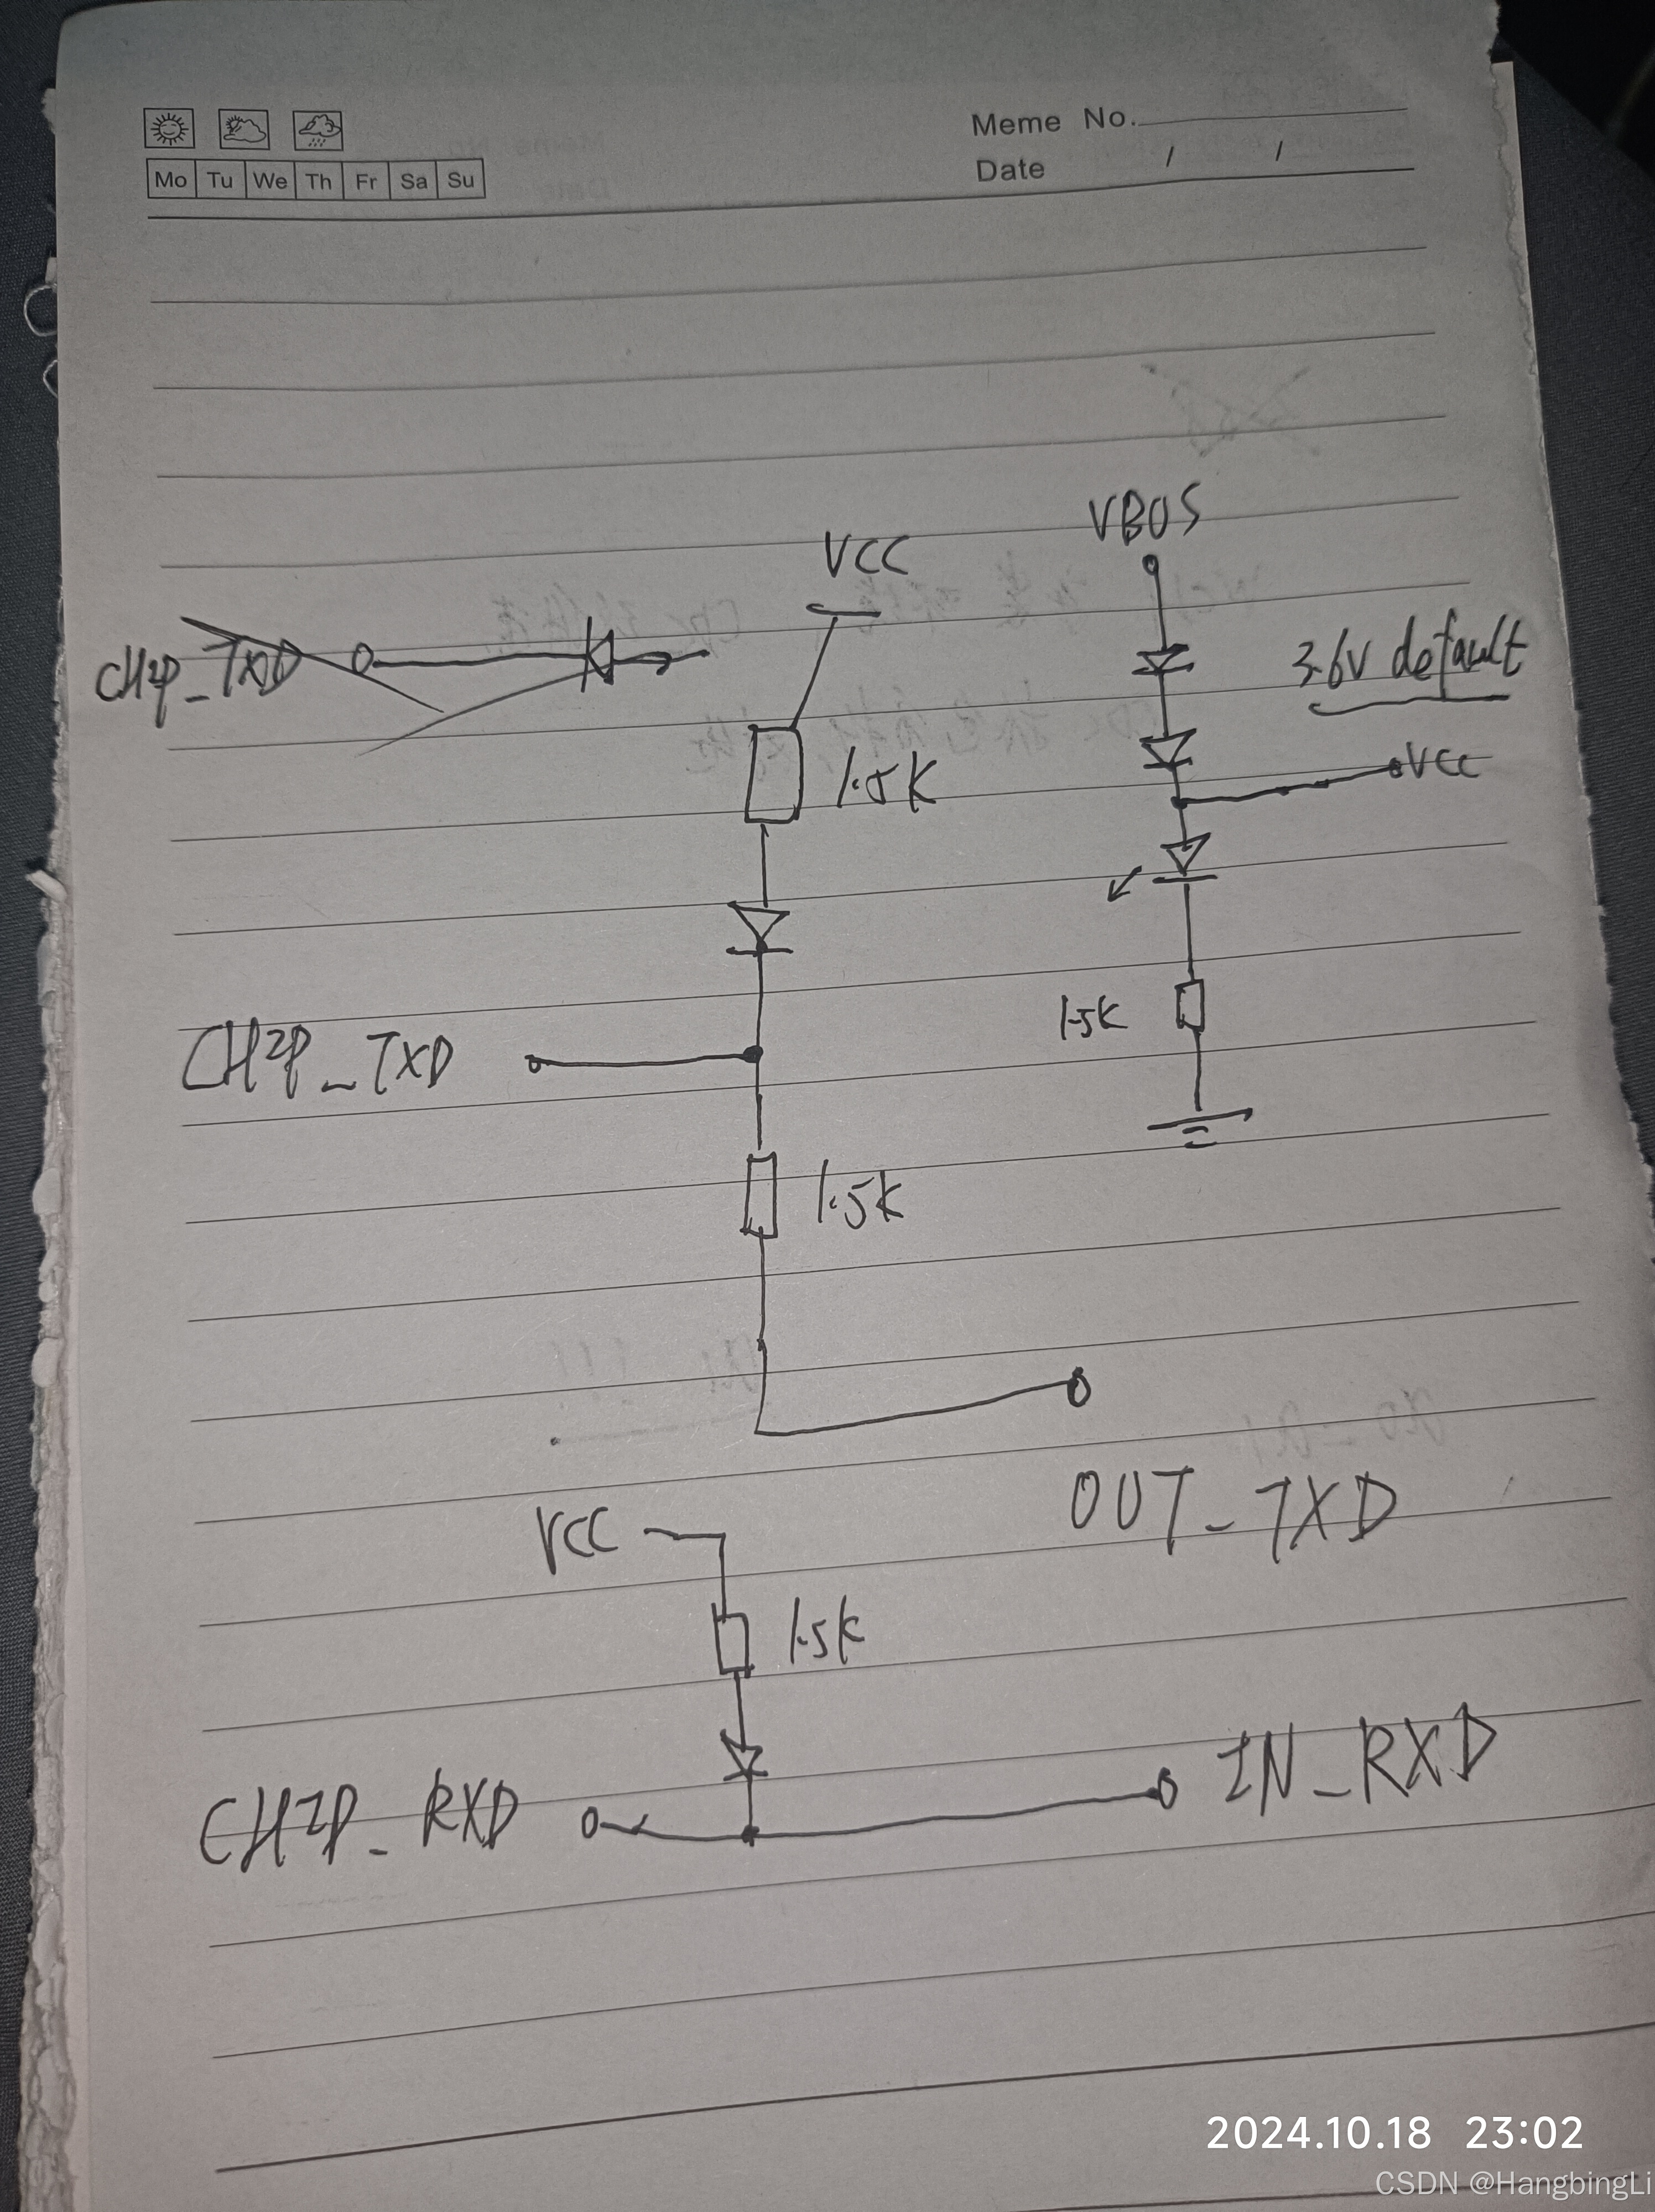 Meme No.
Date / /
Mo Tu We Th Fr Sa Su
VBUS
VCC
CHIP_TXD
3.6V default
1.5K
VCC
1.5K
CHIP_TXD
1.5K
OUT_TXD
VCC
1.5K
IN_RXD
CHIP_RXD
2024.10.18 23:02
CSDN @HangbingLi